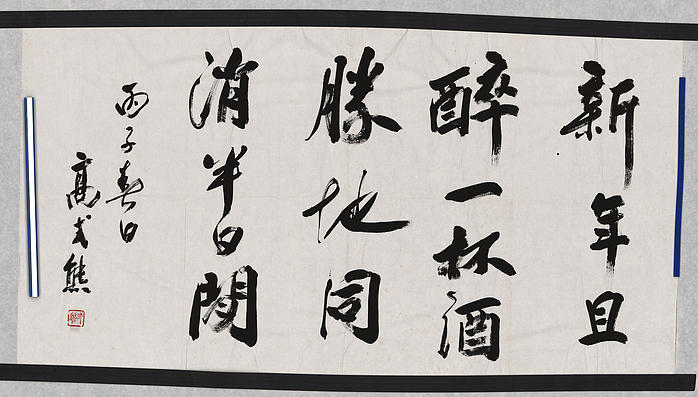 新年且
醉一杯酒
勝地同
消半日閒
丙子春日
高式熊